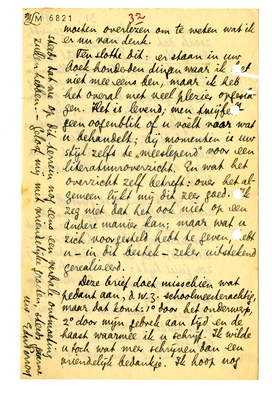 M 6821
32
moeten overlezen om te weten wat ik
er nu van denk.
Ten slotte dit: er staan in uw
boek honderden dingen waar ik het
niet mee eens ben, maar ik heb
het overal met veel plezier
gen. Het is levend, men twijfelt
geen oogenblik of u voelt voor wat
u behandelt; bij momenten is uw
stijl zelfs te "meeslepend" voor een
literatuuroverzicht. En wat het
overzicht zelf betreft: over het al-
gemeen lijkt mij dit zeer goed. Ik
zeg niet dat het ook niet op een
andere manier kan; maar wat u
zich voorgesteld hebt te geven hebt
u - in dit bestek - zeker uitstekend
gerealiseerd.
Deze brief doet misschien wat
pedant aan, d.w.z. schoolmeesterachtig,
maar dat komt: 1° door het onderwerp,
2° door mijn gebrek aan tijd en de
haast waarmee ik u schrijf. Ik wilde
u toch wat meer schrijven dan een
vriendelijk bedankje. Ik hoop nog
steeds dat we op dit terrein nog eens een verbale ontmoeting
zullen hebben. - Geloof mij met vriendelijke groeten, steeds gaarne
uw EduPerron